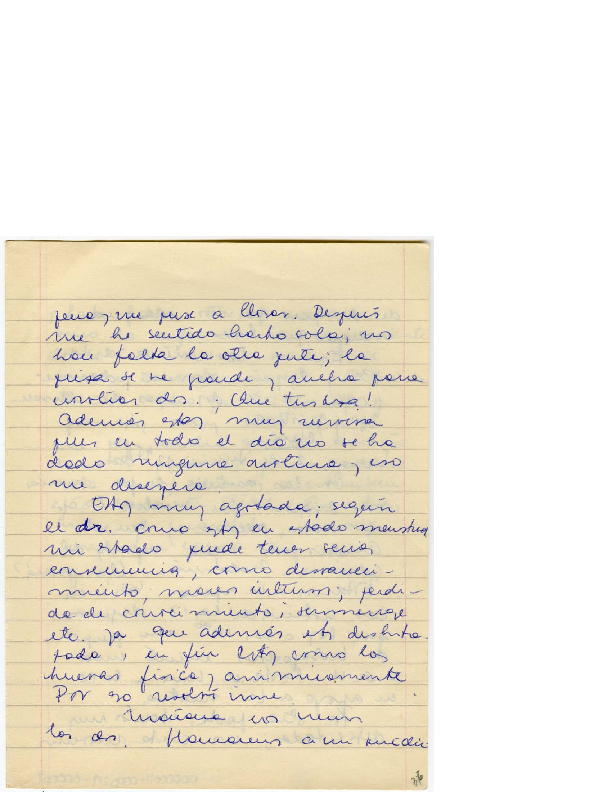 pena y me puse a llorar. Después
me he sentido harto sola; nos
hace falta la otra gente; la
pieza se ve grande y ancha para
nosotras dos. ¡Que tristeza!
Además estoy muy nerviosa
pues en todo el día no se ha
dado ninguna noticia y eso
me desespera.
Estoy muy agotada; según
el dr. como estoy en estado menstrual
mi estado puede tener serias
consecuencias, como desvaneci-
miento, mareos, perdi-
da de conocimiento; surmenage
etc. ya que además estoy deshidra-
tada, en fin estoy como las
huevas física y animicamente
Por eso resolví irme.
Mañana nos vemos
los drs. Llamamos a mi